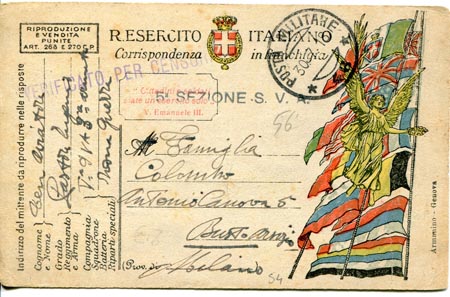 RIPRODUZIONE
E VENDITA
PUNITE
ART. 268 E 270 C.P.
R. ESERCITO ITALIANO
Corrispondenza in franchigia
POSTA MILITARE
VERIFICATO PER CENSURA
"Cittadini e soldati
siate un esercito solo"
V. Emanuele III.
SEZIONE - S. V. A.
56
Alla Famiglia
Colombo
Antonio Canova 5
Busto Arsizio
(Prov. di Milano
54
Indirizzo del mittente da riprodurre nelle risposte
Cognome
e Nome
Grado
Reggimento
e Arma
Compagnia
Squadrone
Batteria
Riparti speciali
Zona guerra
Armanino - Genova